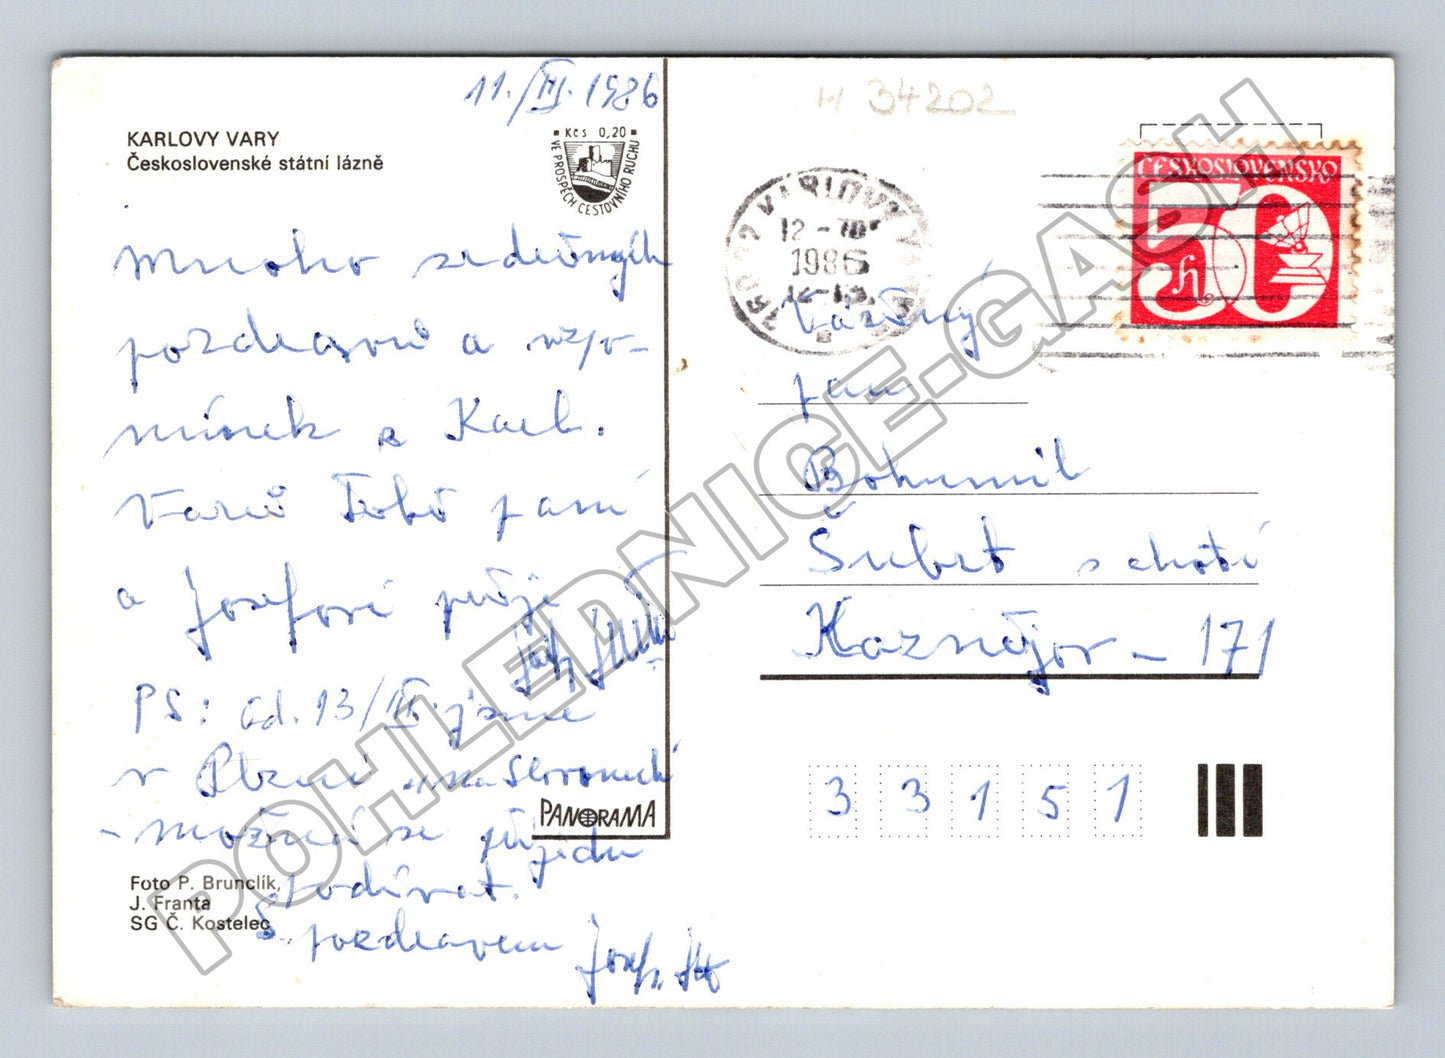 11./III. 1986
KARLOVY VARY
Československé státní lázně
Kčs 0,20
VE PROSPĚCH CESTOVNÍHO RUCHU
Mnoho srdečných
pozdravů a vzpo-
mínek z Karl.
Varů Tobě paní
a Josefovi přeje
PS: od. 13/III. jsme
v Plzni na Slovanech
- možná se přijedu
podívat.
S pozdravem Josef
PANORAMA
Foto P. Brunclík,
J. Franta
SG Č. Kostelec
H 34202
KARLOVY VARY
1986
ČESKOSLOVENSKO
50 h
Vážený
pan
Bohumil
Šubrt s chotí
Kaznějov - 171
33151
POHLEDNICE-GASH